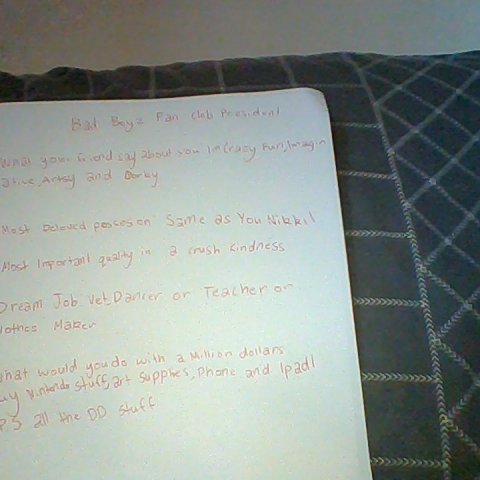 Bad Boyz Fan Club President
What your friend say about you Im Crazy Fun, Imagin
ative, Artsy and Dorky
Most Beloved posseson Same as You Nikki!
Most Important quality in a crush Kindness
Dream Job Vet, Dancer or Teacher or
lothes Maker
What would you do with a Million dollars
uy Nintendo Stuff, art Supplies, Phone and Ipad!
P.S all the DD Stuff